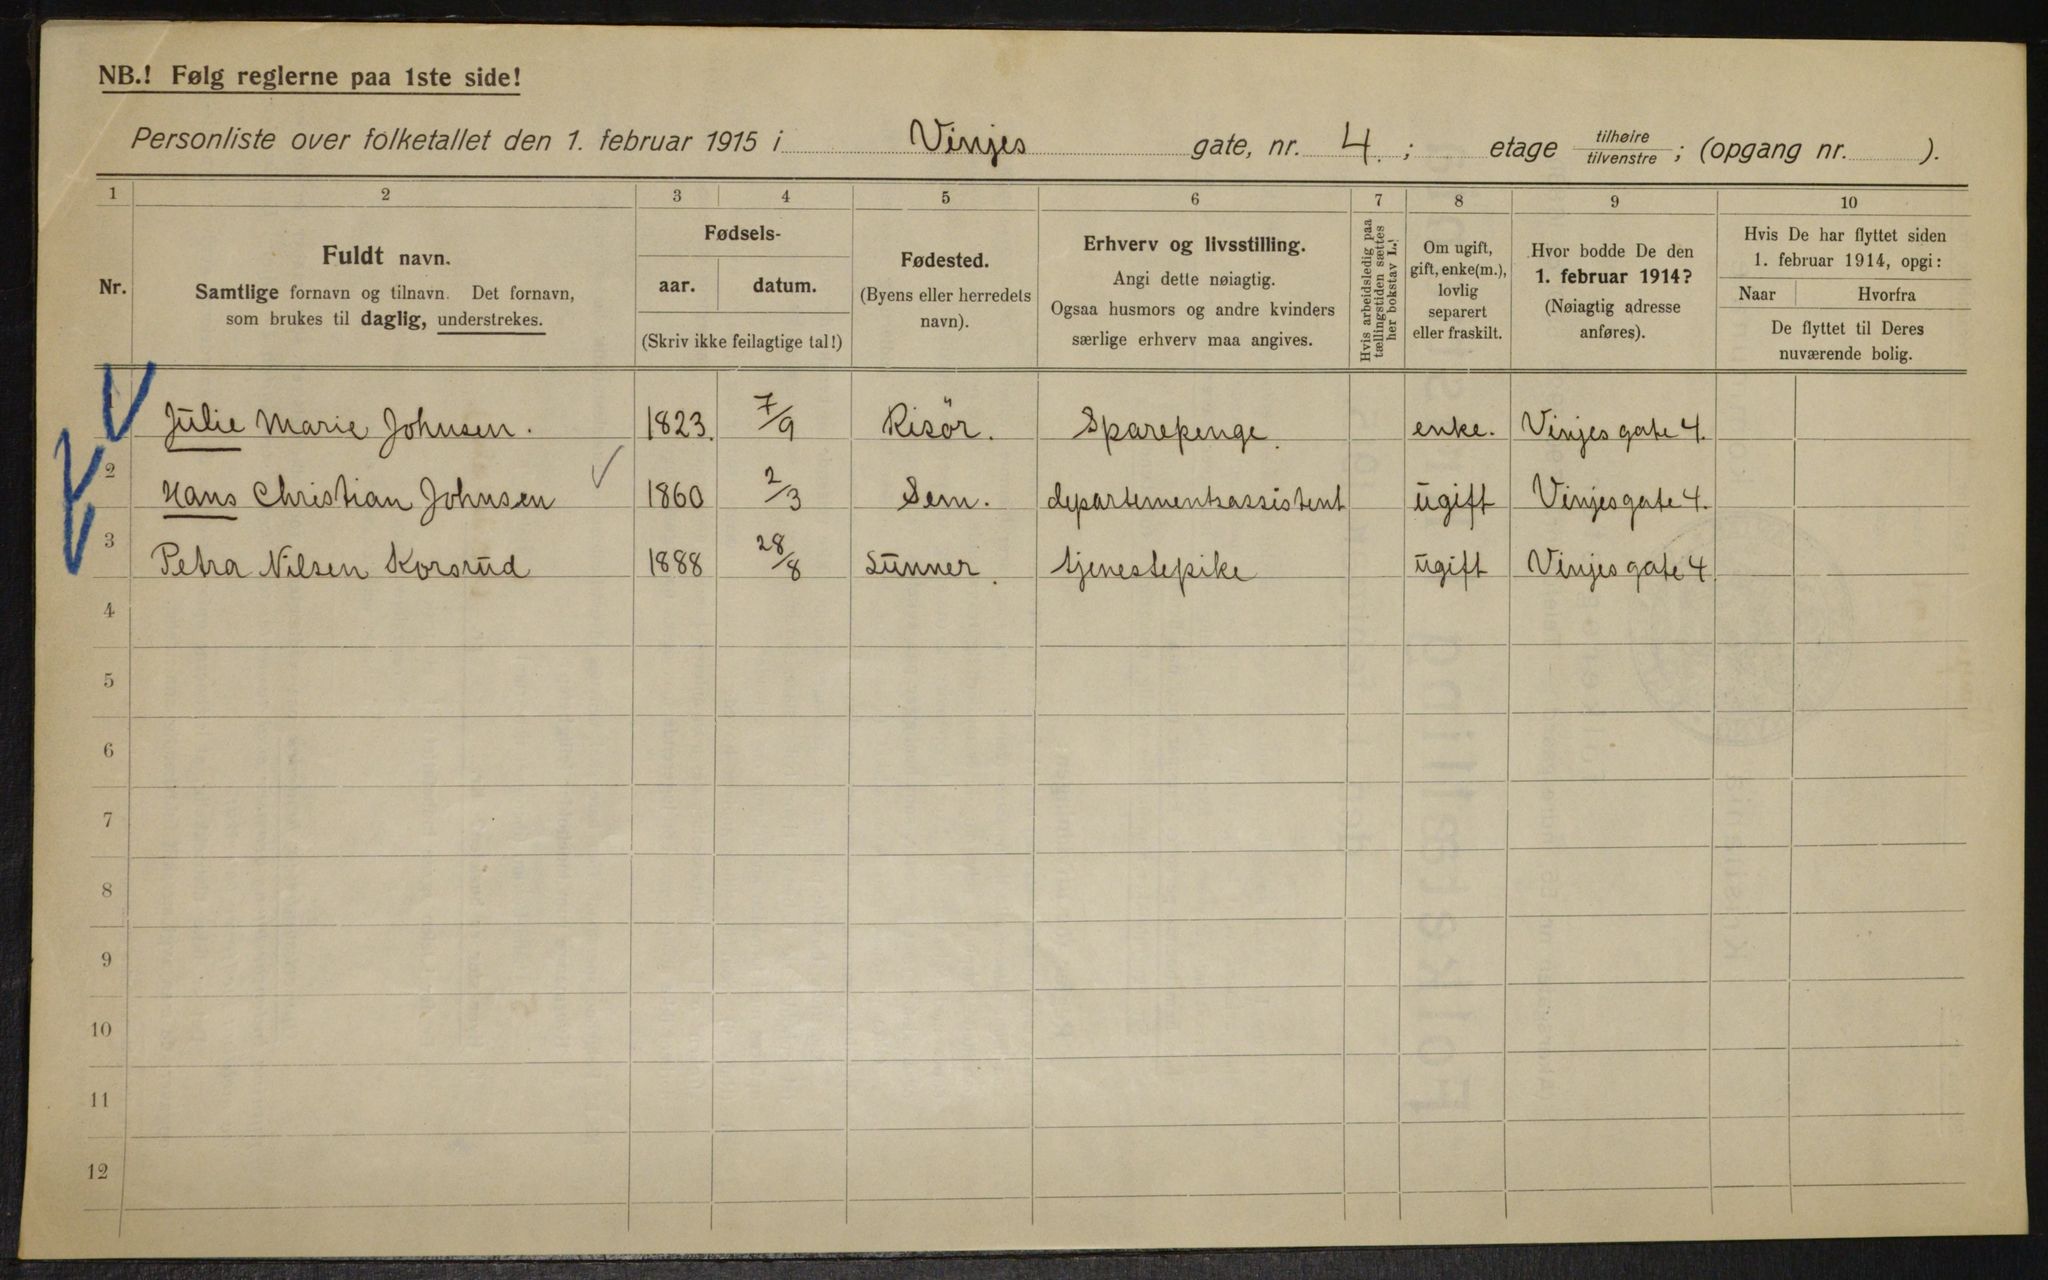 NB.! Følg reglerne paa 1ste side!
Personliste over folketallet den 1. februar 1915 i Vinjes gate, nr. 4. ; etage tilhøire/tilvenstre ; (opgang nr. ).
1 2 3 4 5 6 7 8 9 10
Nr.
Fuldt navn.
Samtlige fornavn og tilnavn. Det fornavn,
som brukes til daglig, understrekes.
Fødsels-
aar. datum.
(Skriv ikke feilagtige tal!)
Fødested.
(Byens eller herredets
navn).
Erhverv og livsstilling.
Angi dette nøiagtig.
Ogsaa husmors og andre kvinders
særlige erhverv maa angives.
Hvis arbeidsledig paa
tællingstiden sættes
her bokstav L.!
Om ugift,
gift, enke(m.),
lovlig
separert
eller fraskilt.
Hvor bodde De den
1. februar 1914?
(Nøiagtig adresse
anføres).
Hvis De har flyttet siden
1. februar 1914, opgi:
Naar Hvorfra
De flyttet til Deres
nuværende bolig.
Julie Marie Johnsen. 1823. 7/9 Risör. Sparepenge. enke. Vinjesgate 4.
2 Hans Christian Johnsen 1860 2/3 Sem. departementsassistent ugift Vinjesgate 4.
3 Petra Nilsen Korsrud 1888 28/8 Lunner. tjenestepike ugift Vinjesgate 4
4
5
6
7
8
9
10
11
12